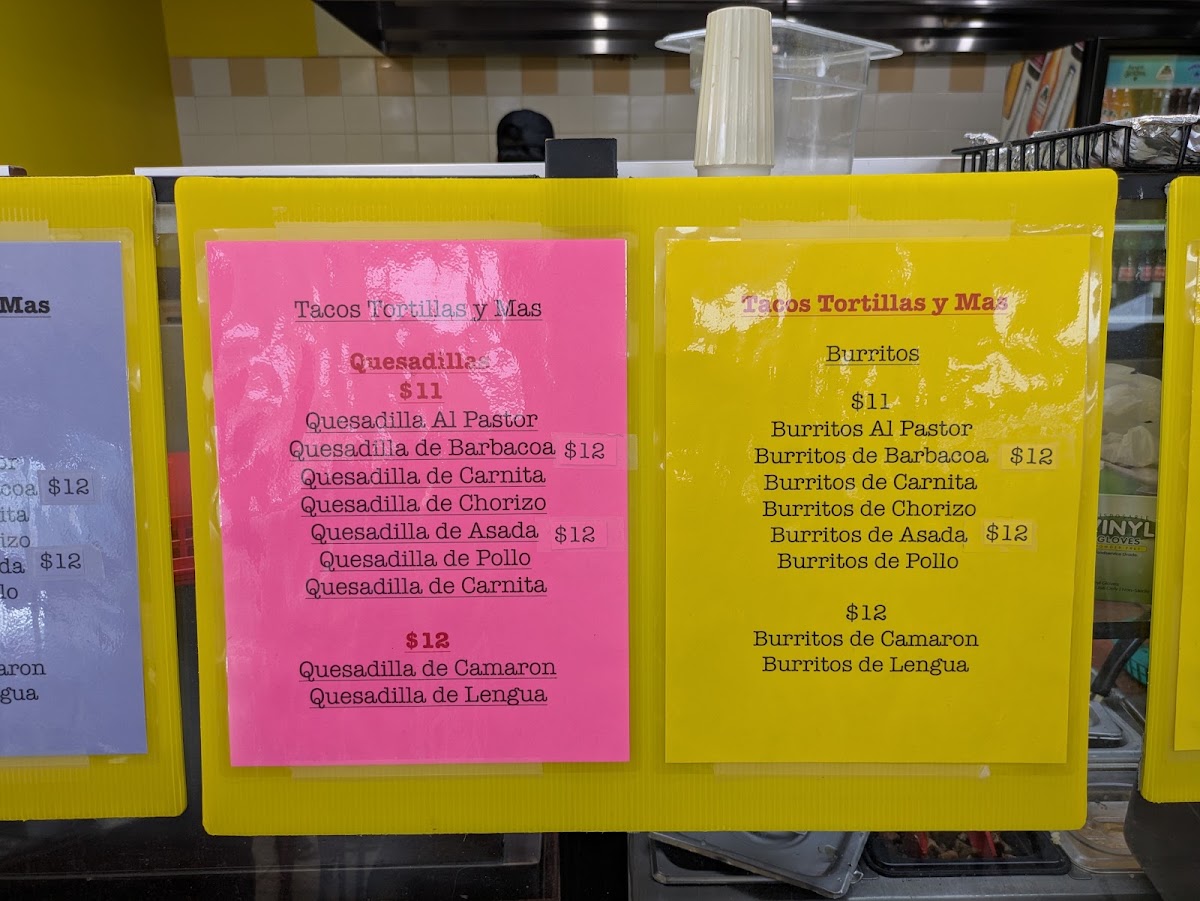 Mas
$12
$12
Tacos Tortillas y Mas
Quesadillas
$11
Quesadilla Al Pastor
Quesadilla de Barbacoa $12
Quesadilla de Carnita
Quesadilla de Chorizo
Quesadilla de Asada $12
Quesadilla de Pollo
Quesadilla de Carnita
$12
Quesadilla de Camaron
Quesadilla de Lengua
Tacos Tortillas y Mas
Burritos
$11
Burritos Al Pastor
Burritos de Barbacoa $12
Burritos de Carnita
Burritos de Chorizo
Burritos de Asada $12
Burritos de Pollo
$12
Burritos de Camaron
Burritos de Lengua
VINYL
GLOVES